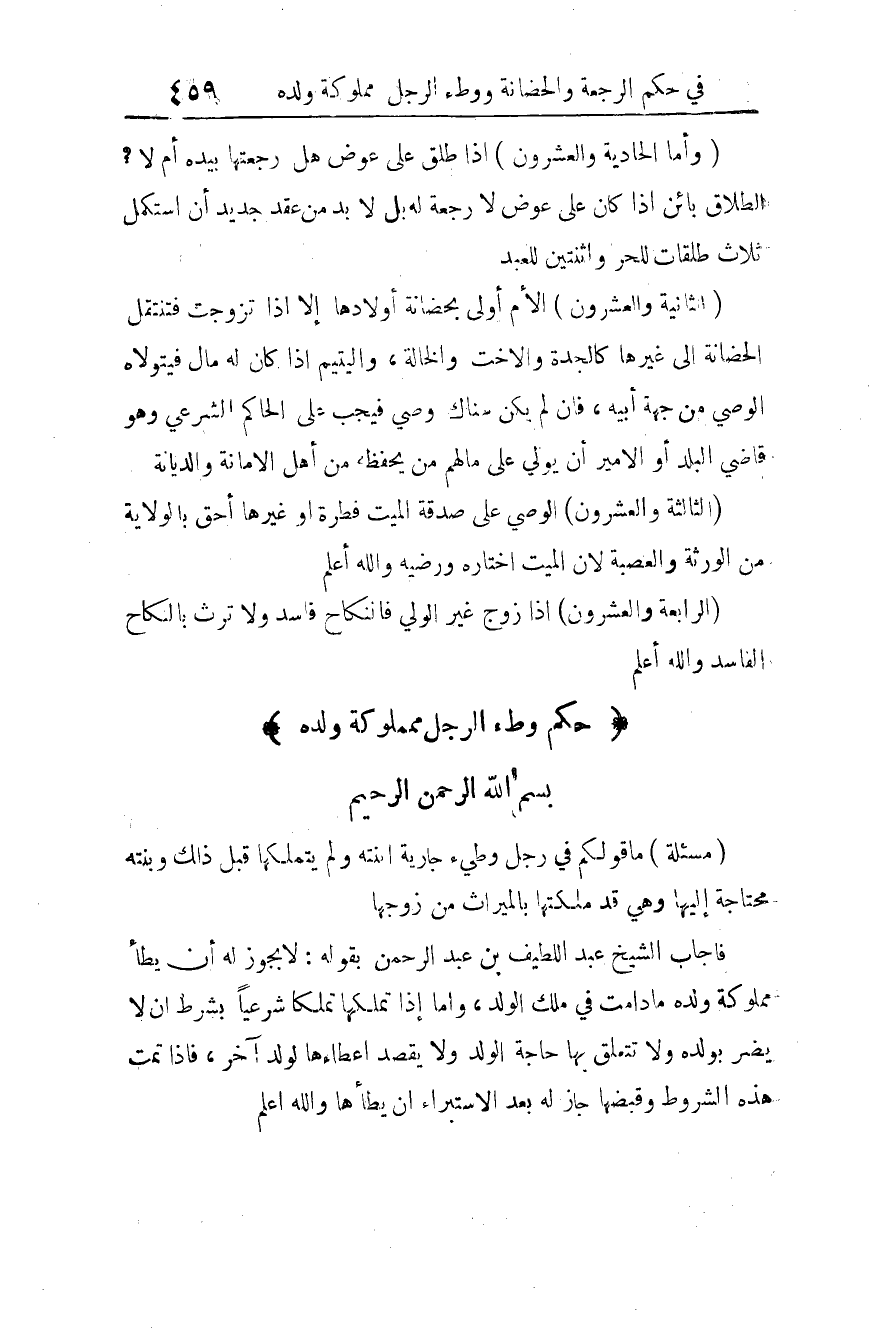 في حكم الرجعة والحضانة ووطء الرجل مملوكة ولده ٤٥٩
( وأما الحادية والعشرون ) اذا طلق على عوض هل رجعتها بيده أم لا ؟
الطلاق بائن اذا كان على عوض لا رجعة له بل لا بد من عقد جديد أن استكمل
ثلاث طلقات للحر واثنتين للعبد
( الثانية والعشرون ) الأم أولى بحضانة أولادها إلا اذا تزوجت فتنتقل
الحضانة الى غيرها كالجدة والاخت والخالة ، واليتيم اذا كان له مال فيتولاه
الوصي من جهة أبيه ، فان لم يكن هناك وصي فيجب على الحاكم الشرعي وهو
قاضي البلد أو الامير أن يولي على مالهم من يحفظه من أهل الامانة والديانة
(الثالثة والعشرون) الوصي على صدقة الميت فطرة او غيرها أحق بالولاية
من الورثة والعصبة لان الميت اختاره ورضيه والله أعلم
(الرابعة والعشرون) اذا زوج غير الولي فالنكاح فاسد ولا ترث بالنكاح
الفاسد والله أعلم
﴿ حكم وطء الرجل مملوكة ولده ﴾
بسم الله الرحمن الرحيم
( مسئلة ) ماقولكم في رجل وطيء جارية ابنته ولم يتملكها قبل ذالك وبنته
محتاجة إليها وهي قد ملكتها بالميراث من زوجها
فاجاب الشيخ عبد اللطيف بن عبد الرحمن بقوله : لايجوز له أن يطأ
مملوكة ولده مادامت في ملك الولد ، واما إذا تملكها تملكا شرعياً بشرط ان لا
يضر بولده ولا تتعلق بها حاجة الولد ولا يقصد اعطاءها لولد آخر ، فاذا تمت
هذه الشروط وقبضها جاز له بعد الاستبراء ان يطأها والله اعلم